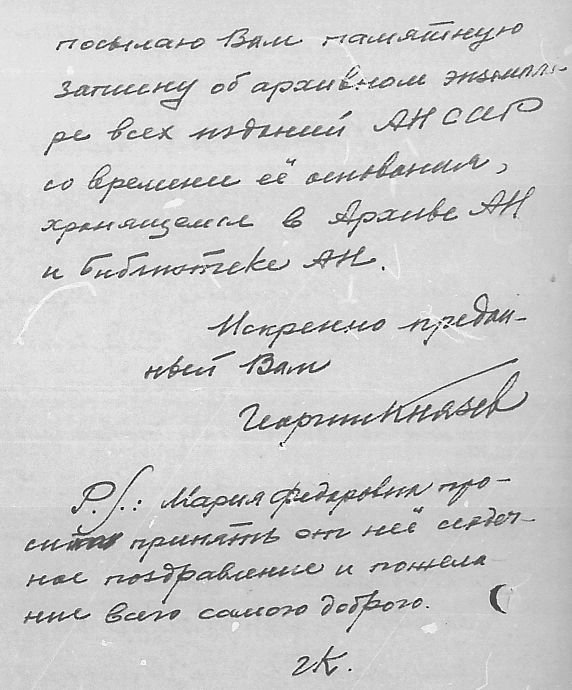 посылаю Вам памятную
записку об архивном экземпля-
ре всех изданий АН СССР
со времени её основания,
хранящемся в Архиве АН
и Библиотеке АН.
Искренно предан-
ный Вам
Георгий Князев
P.S.: Мария Федоровна про-
сит принять от неё сердеч-
ное поздравление и пожела
ние всего самого доброго.
ГК.